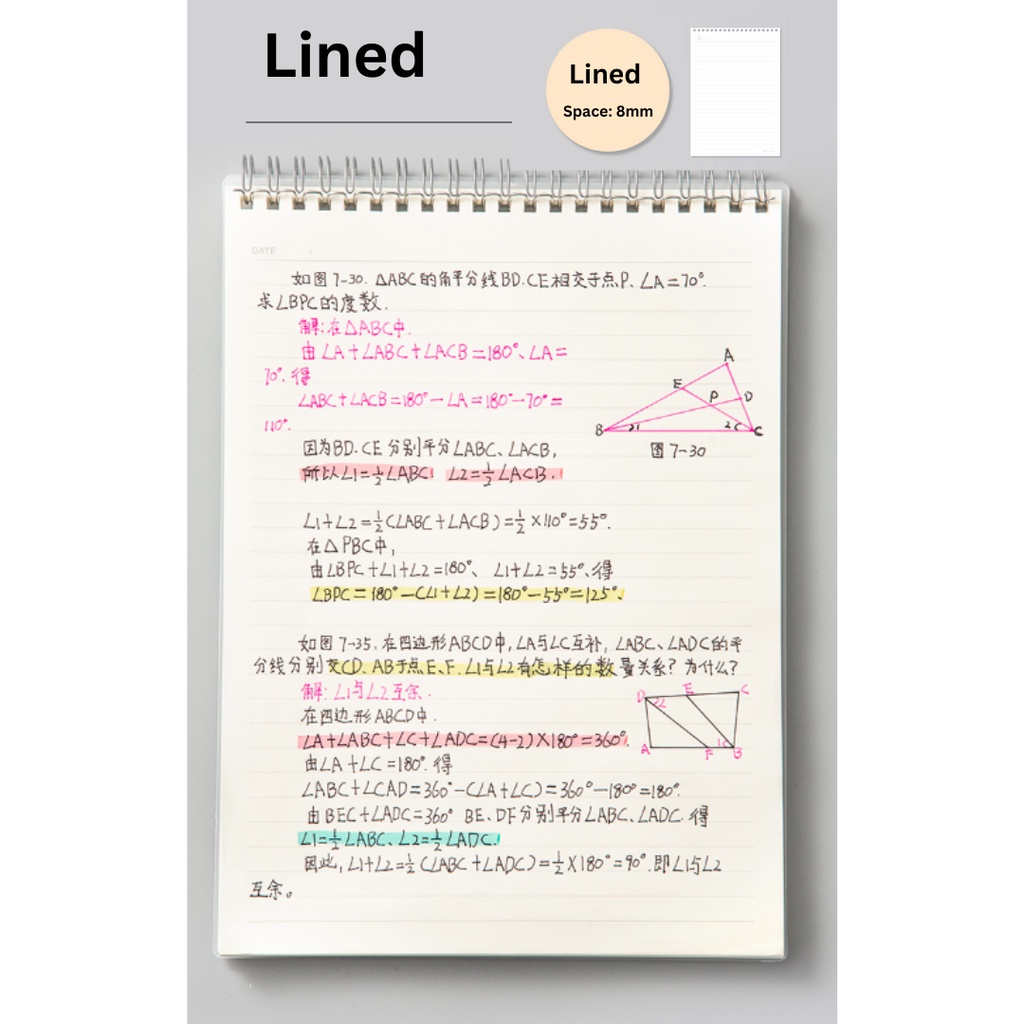 Lined
Lined
Space: 8mm
DATE /
如图7-30. △ABC的角平分线BD.CE相交于点P、∠A=70°.
求∠BPC的度数.
解:在△ABC中.
由∠A+∠ABC+∠ACB=180°、∠A=
70°.得
∠ABC+∠ACB=180°-∠A=180°-70°=
110°.
因为BD.CE分别平分∠ABC、∠ACB,
所以∠1=½∠ABC ∠2=½∠ACB.
A
E
P
D
B
1
2
C
图7-30
∠1+∠2=½(∠ABC+∠ACB)=½×110°=55°.
在△PBC中,
由∠BPC+∠1+∠2=180°、∠1+∠2=55°.得
∠BPC=180°-(∠1+∠2)=180°-55°=125°.
如图7-35.在四边形ABCD中,∠A与∠C互补,∠ABC、∠ADC的平
分线分别交CD、AB于点E、F.∠1与∠2有怎样的数量关系?为什么?
解:∠1与∠2互余.
在四边形ABCD中.
∠A+∠ABC+∠C+∠ADC=(4-2)×180°=360°.
由∠A+∠C=180°.得
∠ABC+∠CAD=360°-(∠A+∠C)=360°-180°=180°.
由BEC+∠ADC=360° BE、DF分别平分∠ABC、∠ADC.得
∠1=½∠ABC、∠2=½∠ADC.
因此,∠1+∠2=½(∠ABC+∠ADC)=½×180°=90°.即∠1与∠2
互余。
D
E
C
2
1
A
F
B